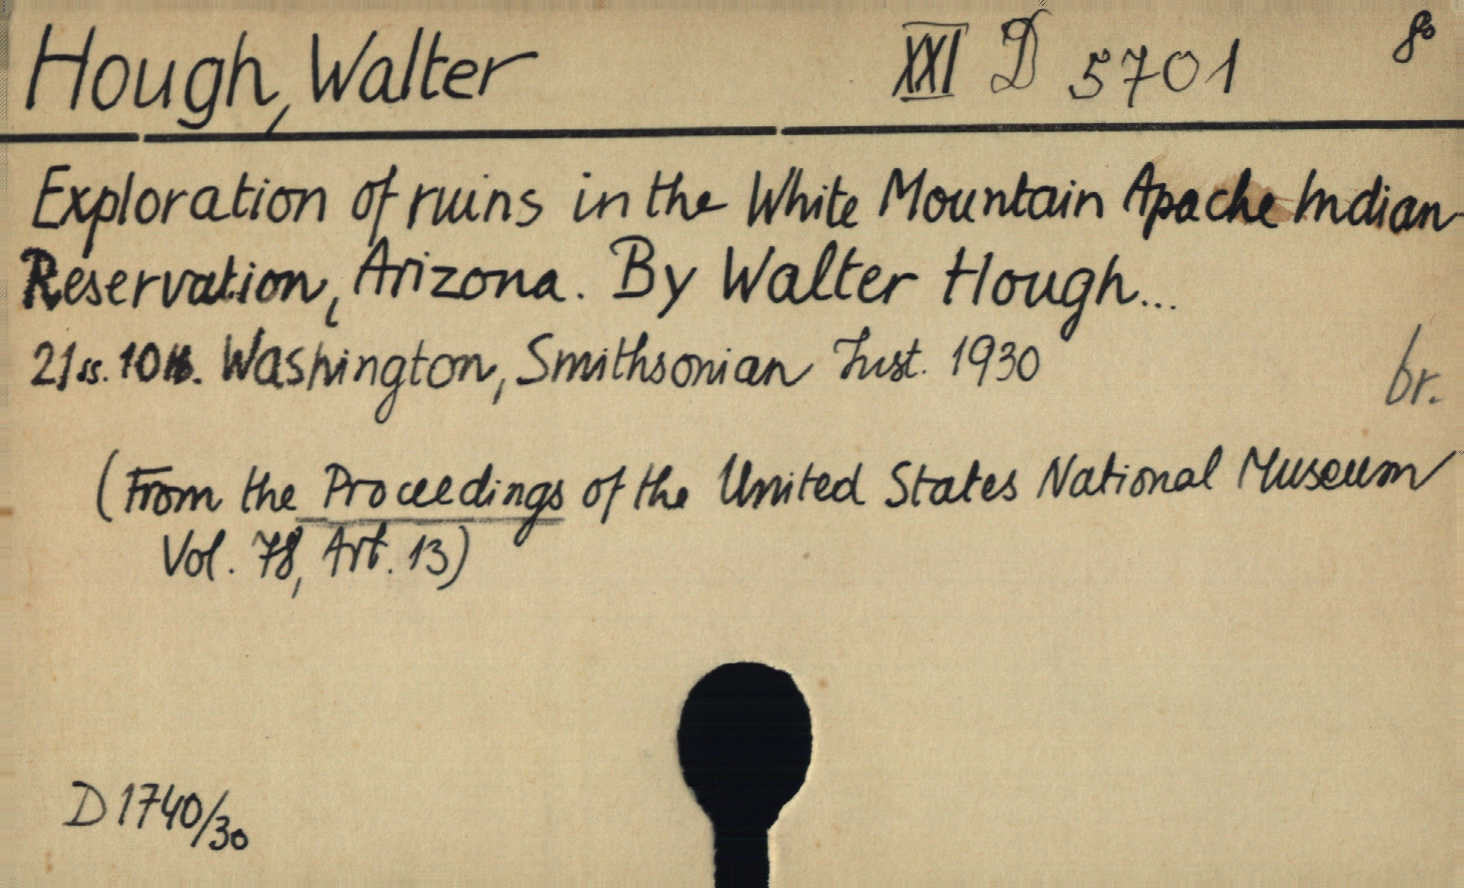 Hough, Walter XXI D 5701 8°
Exploration of ruins in the White Mountain Apache Indian
Reservation, Arizona. By Walter Hough...
21 ss. 10 tt. Washington, Smithsonian Inst. 1930
br.
(From the Proceedings of the United States National Museum
Vol. 78, Art. 13)
D 1740/30